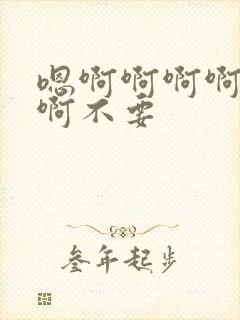 嗯啊啊啊啊
啊不要
叁年起步